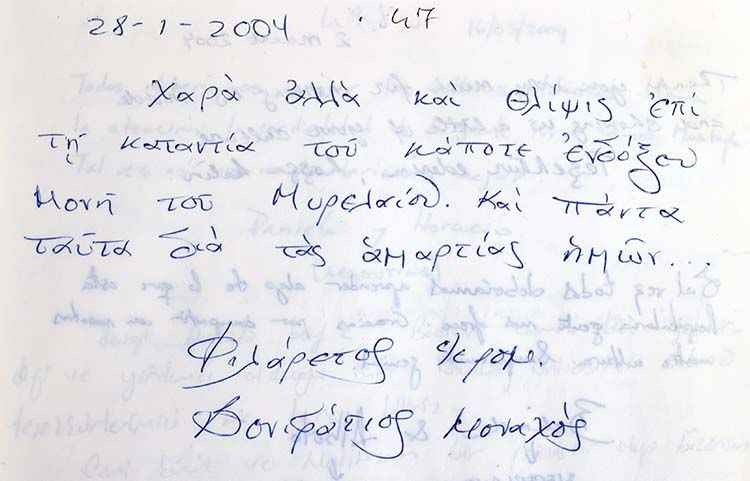 28-1-2004 . 47
Χαρὰ ἀλλὰ καὶ θλίψις ἐπὶ
τῇ καταντία τοῦ κάποτε ἐνδόξου
Μονῆ τοῦ Μυρελαίου. Καὶ πάντα
ταῦτα διὰ τὰς ἁμαρτίας ἡμῶν...
Φιλάρετος Ιερομ.
Βονιφάτιος μοναχὸς